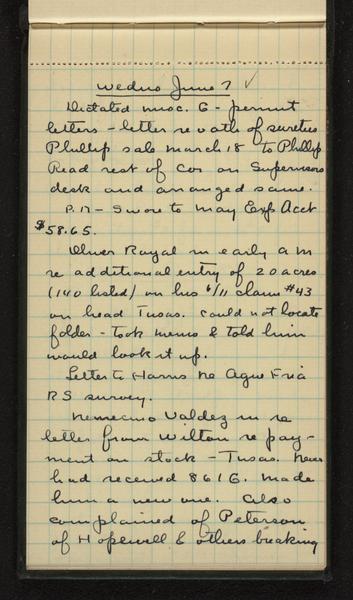 Wednes June 7 ✓
Dictated misc. G - permit
letters - letter re oath of sureties
Phillip sale March 18 to Phillip
Read rest of Cor on Supervisors
desk and arranged same.
P.M - Swore to May Exp Acct
$58.65.
Oliver Royal in early a m
re additional entry of 20 acres
(140 listed) on his 6/11 claim #43
on head Tusas. Could not locate
folder - took memo & told him
would look it up.
Letter to Harris re Agua Fria
R S survey.
Nemecino Valdez in re
letter from Wilton re pay-
ment on stock - Tusas. Never
had received 861G. Made
him a new one. Also
complained of Peterson
of Hopewell & others breaking